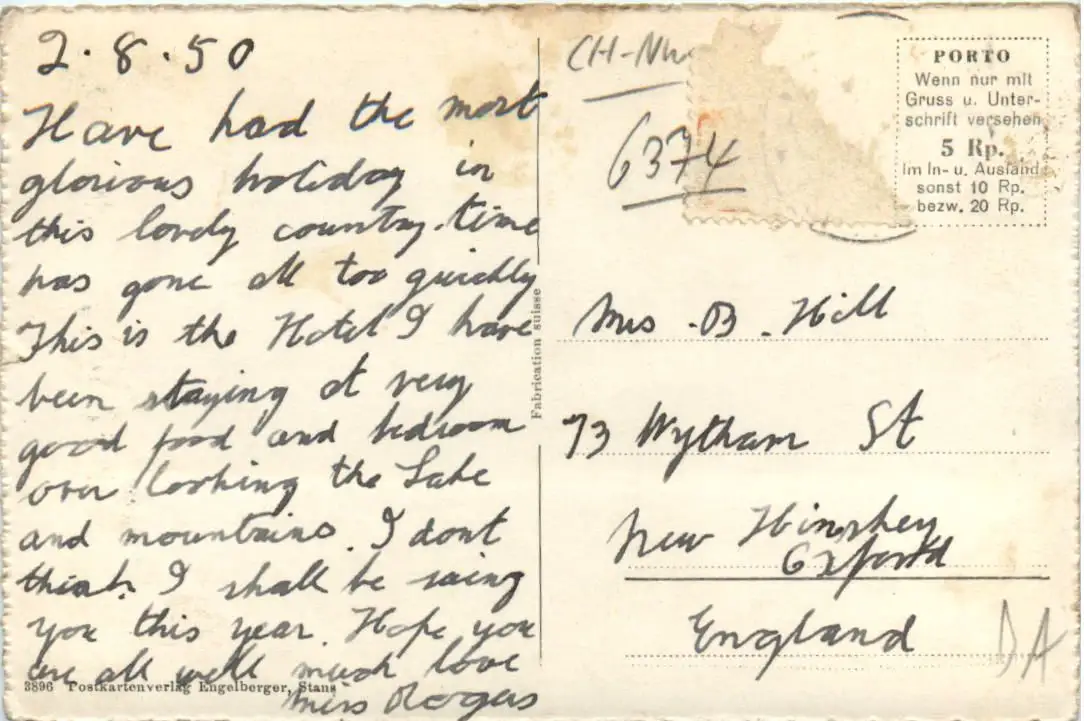 2.8.50
Have had the most
glorious holiday in
this lovely country. time
has gone all too quickly
This is the Hotel I have
been staying at very
good food and bedroom
over looking the Lake
and mountains. I dont
think I shall be seing
you this year. Hope you
are all well much love
Miss Rogers
3896 Postkartenverlag Engelberger, Stans
Fabrication suisse
CH-NW
6374
PORTO
Wenn nur mit
Gruss u. Unter-
schrift versehen
5 Rp.
Im In- u. Ausland
sonst 10 Rp.
bezw. 20 Rp.
Mrs .B. Hill
73 Wytham St
New Hinskey
Oxford
England